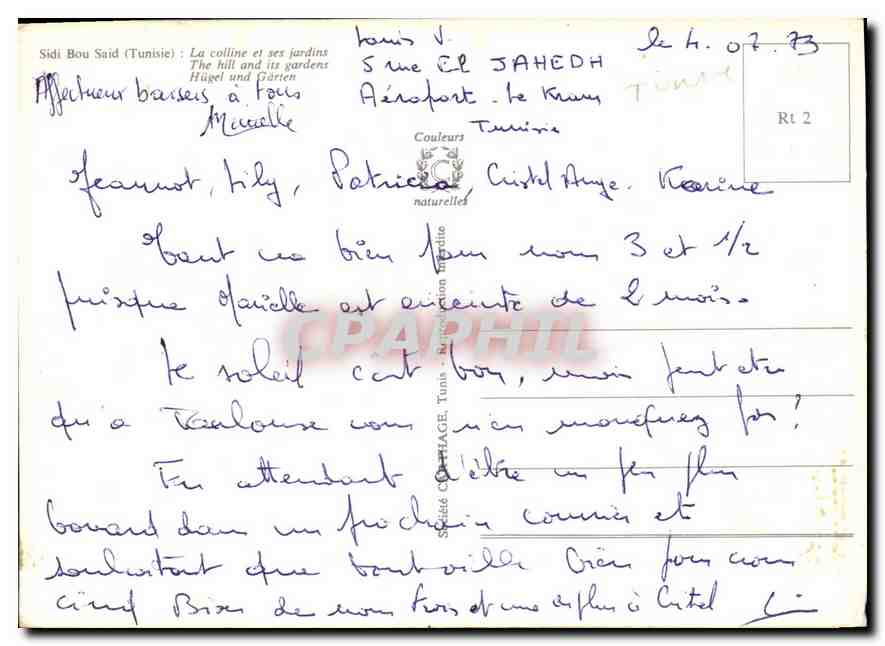 Sidi Bou Said (Tunisie) : La colline et ses jardins
The hill and its gardens
Hügel und Gärten
Louis V.
5 rue El JAHEDH
Aéroport - Le Kram
Tunisie
le 4.07.73
Rt 2
Affectueux baisers à tous
Couleurs
C
naturelles
Jeannot, Lily, Patricia, Cristel Ange. Karine
Tout va bien pour nous 3 et 1/2
puisque Marielle est enceinte de 2 mois.
Le soleil c'est bon, mais peut etre
qu'a Toulouse vous n'en manquez pas!
En attendant d'être un peu plus
bavard dans un prochain courrier et
souhaitant que tout aille bien pour vous
cinq Bises de nous trois et une de plus à Cristel
Société CARTHAGE, Tunis - Reproduction Interdite
CPAPHIL